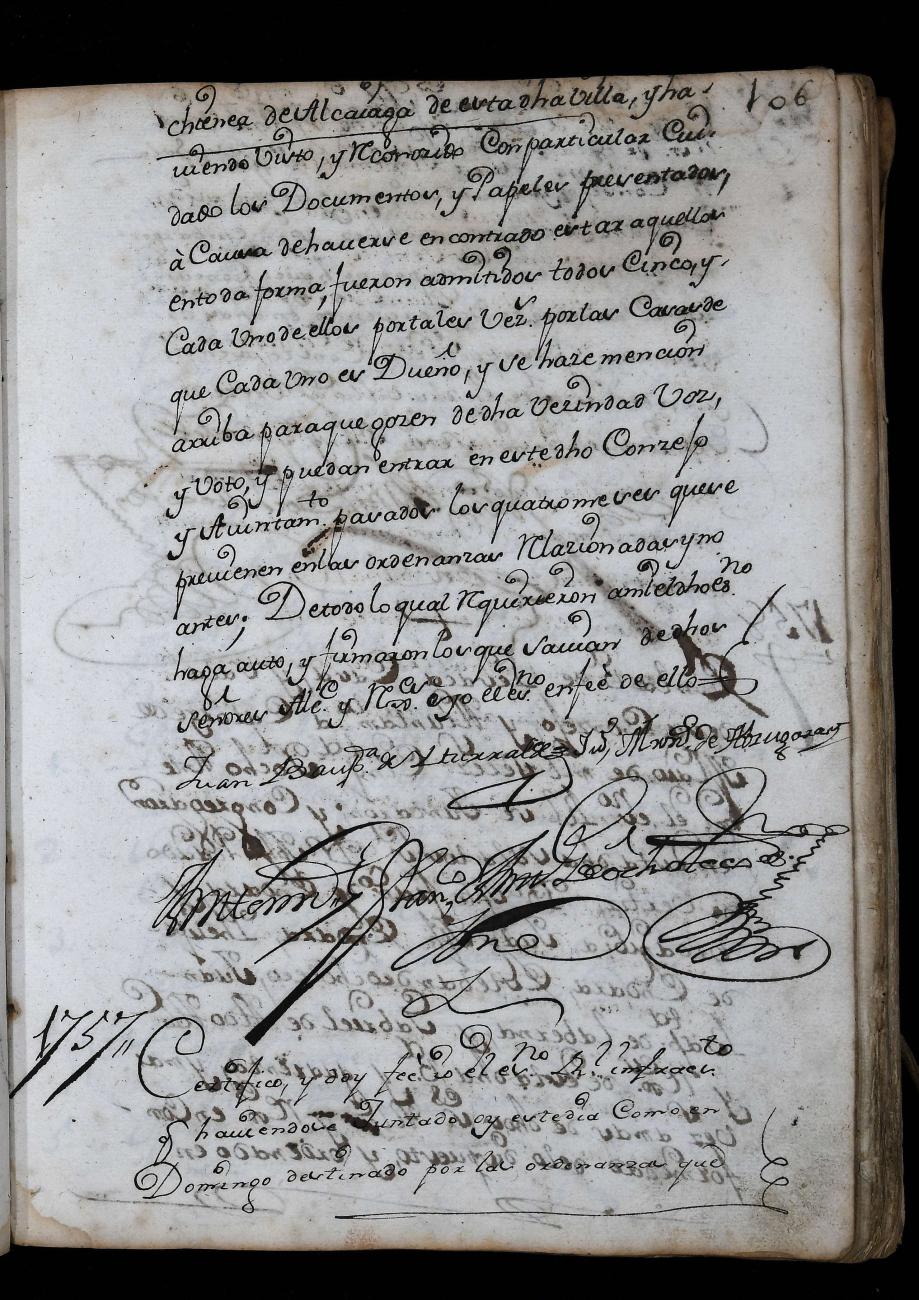 106
chenea de Alcaiaga de esta dha Villa, y ha-
viendo Visto, y Rconozido Con particular Cui-
dado los Documentos, y Papeles presentados,
à Causa de haverse encontrado estar aquellos
en toda forma, fueron admitidos todos Cinco, y
Cada Uno de ellos por tales Vez.s por las Casas de
que Cada Uno es Dueño, y se haze mencion
arriba para que gozen de dha Vezindad Voz,
y Voto, y puedan entrar en este dho Conzejo
y Aiuntam.to pasados los quatro meses que se
previenen en las ordenanzas Rlazionadas y no
antes; De todo lo qual Rquirieron ami el dho es.no
haga auto, y firmaron los que Savian de dhos
Señores Alc.e y R.es e yo el es.no en feè de ello
Juan Baup.ta de Yturralde
Antemi
1757
Certifico, y doy feè yo el es.no Rl. infraes.to
q haviendose Juntado oy este dia Como en
Domingo destinado por las ordenanzas que